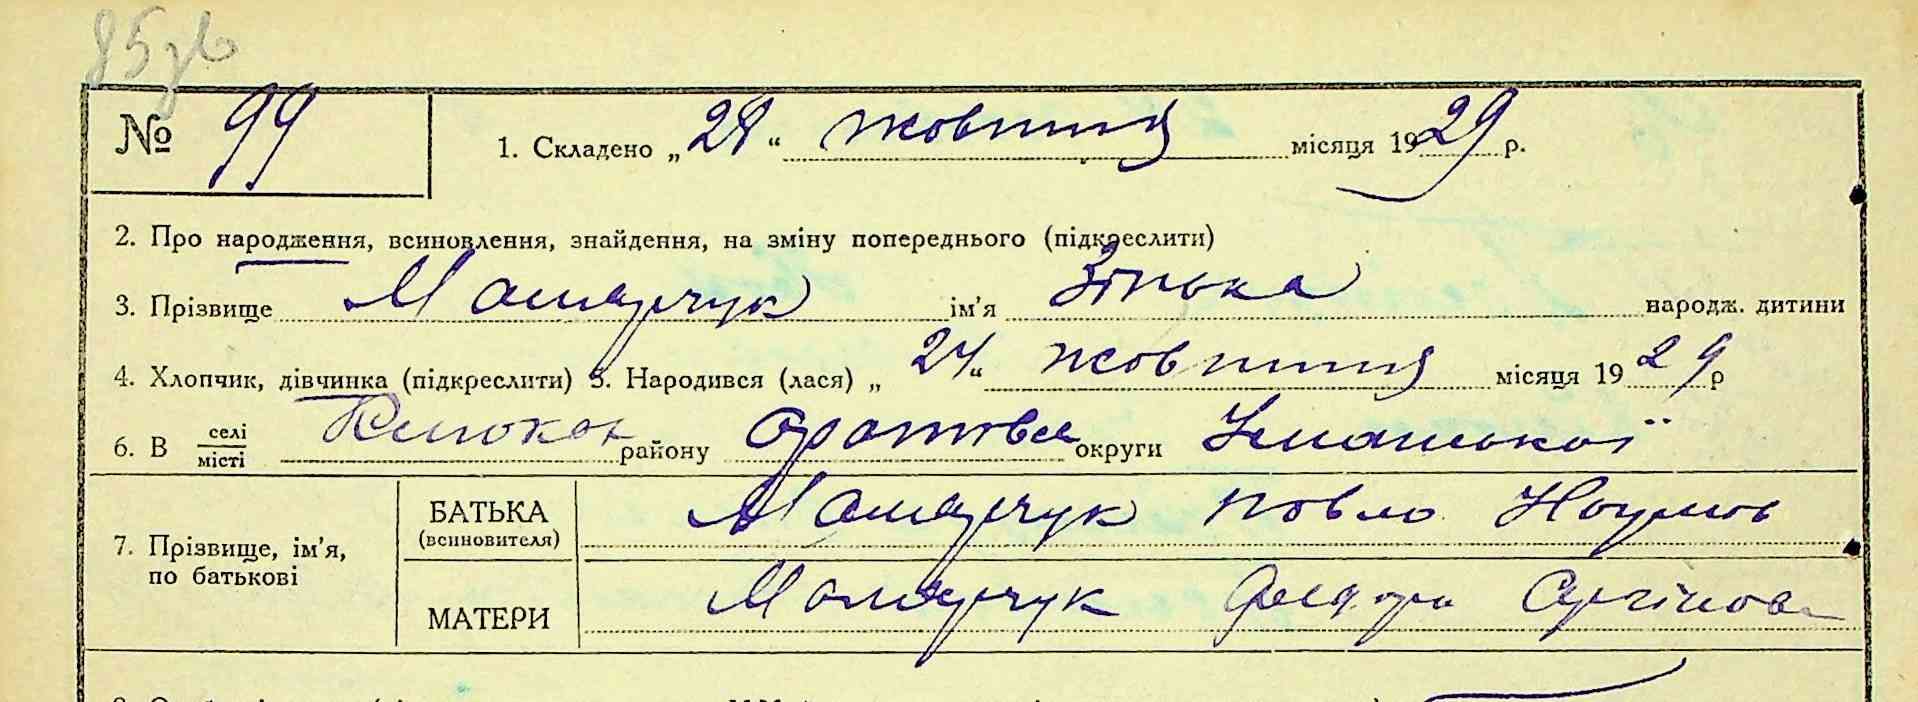 85 зв
№ 99
1. Складено „28“ жовтня місяця 1929 р.
2. Про народження, всиновлення, знайдення, на зміну попереднього (підкреслити)
3. Прізвище Малярчук ім’я Зінька народж. дитини
4. Хлопчик, дівчинка (підкреслити) 5. Народився (лася) „24“ жовтня місяця 1929 р
6. В селі місті району Оратівск округи Уманської
7. Прізвище, ім’я, по батькові
БАТЬКА (всиновителя) Малярчук Павло Наумов
МАТЕРИ Малярчук Федора Сергіїова